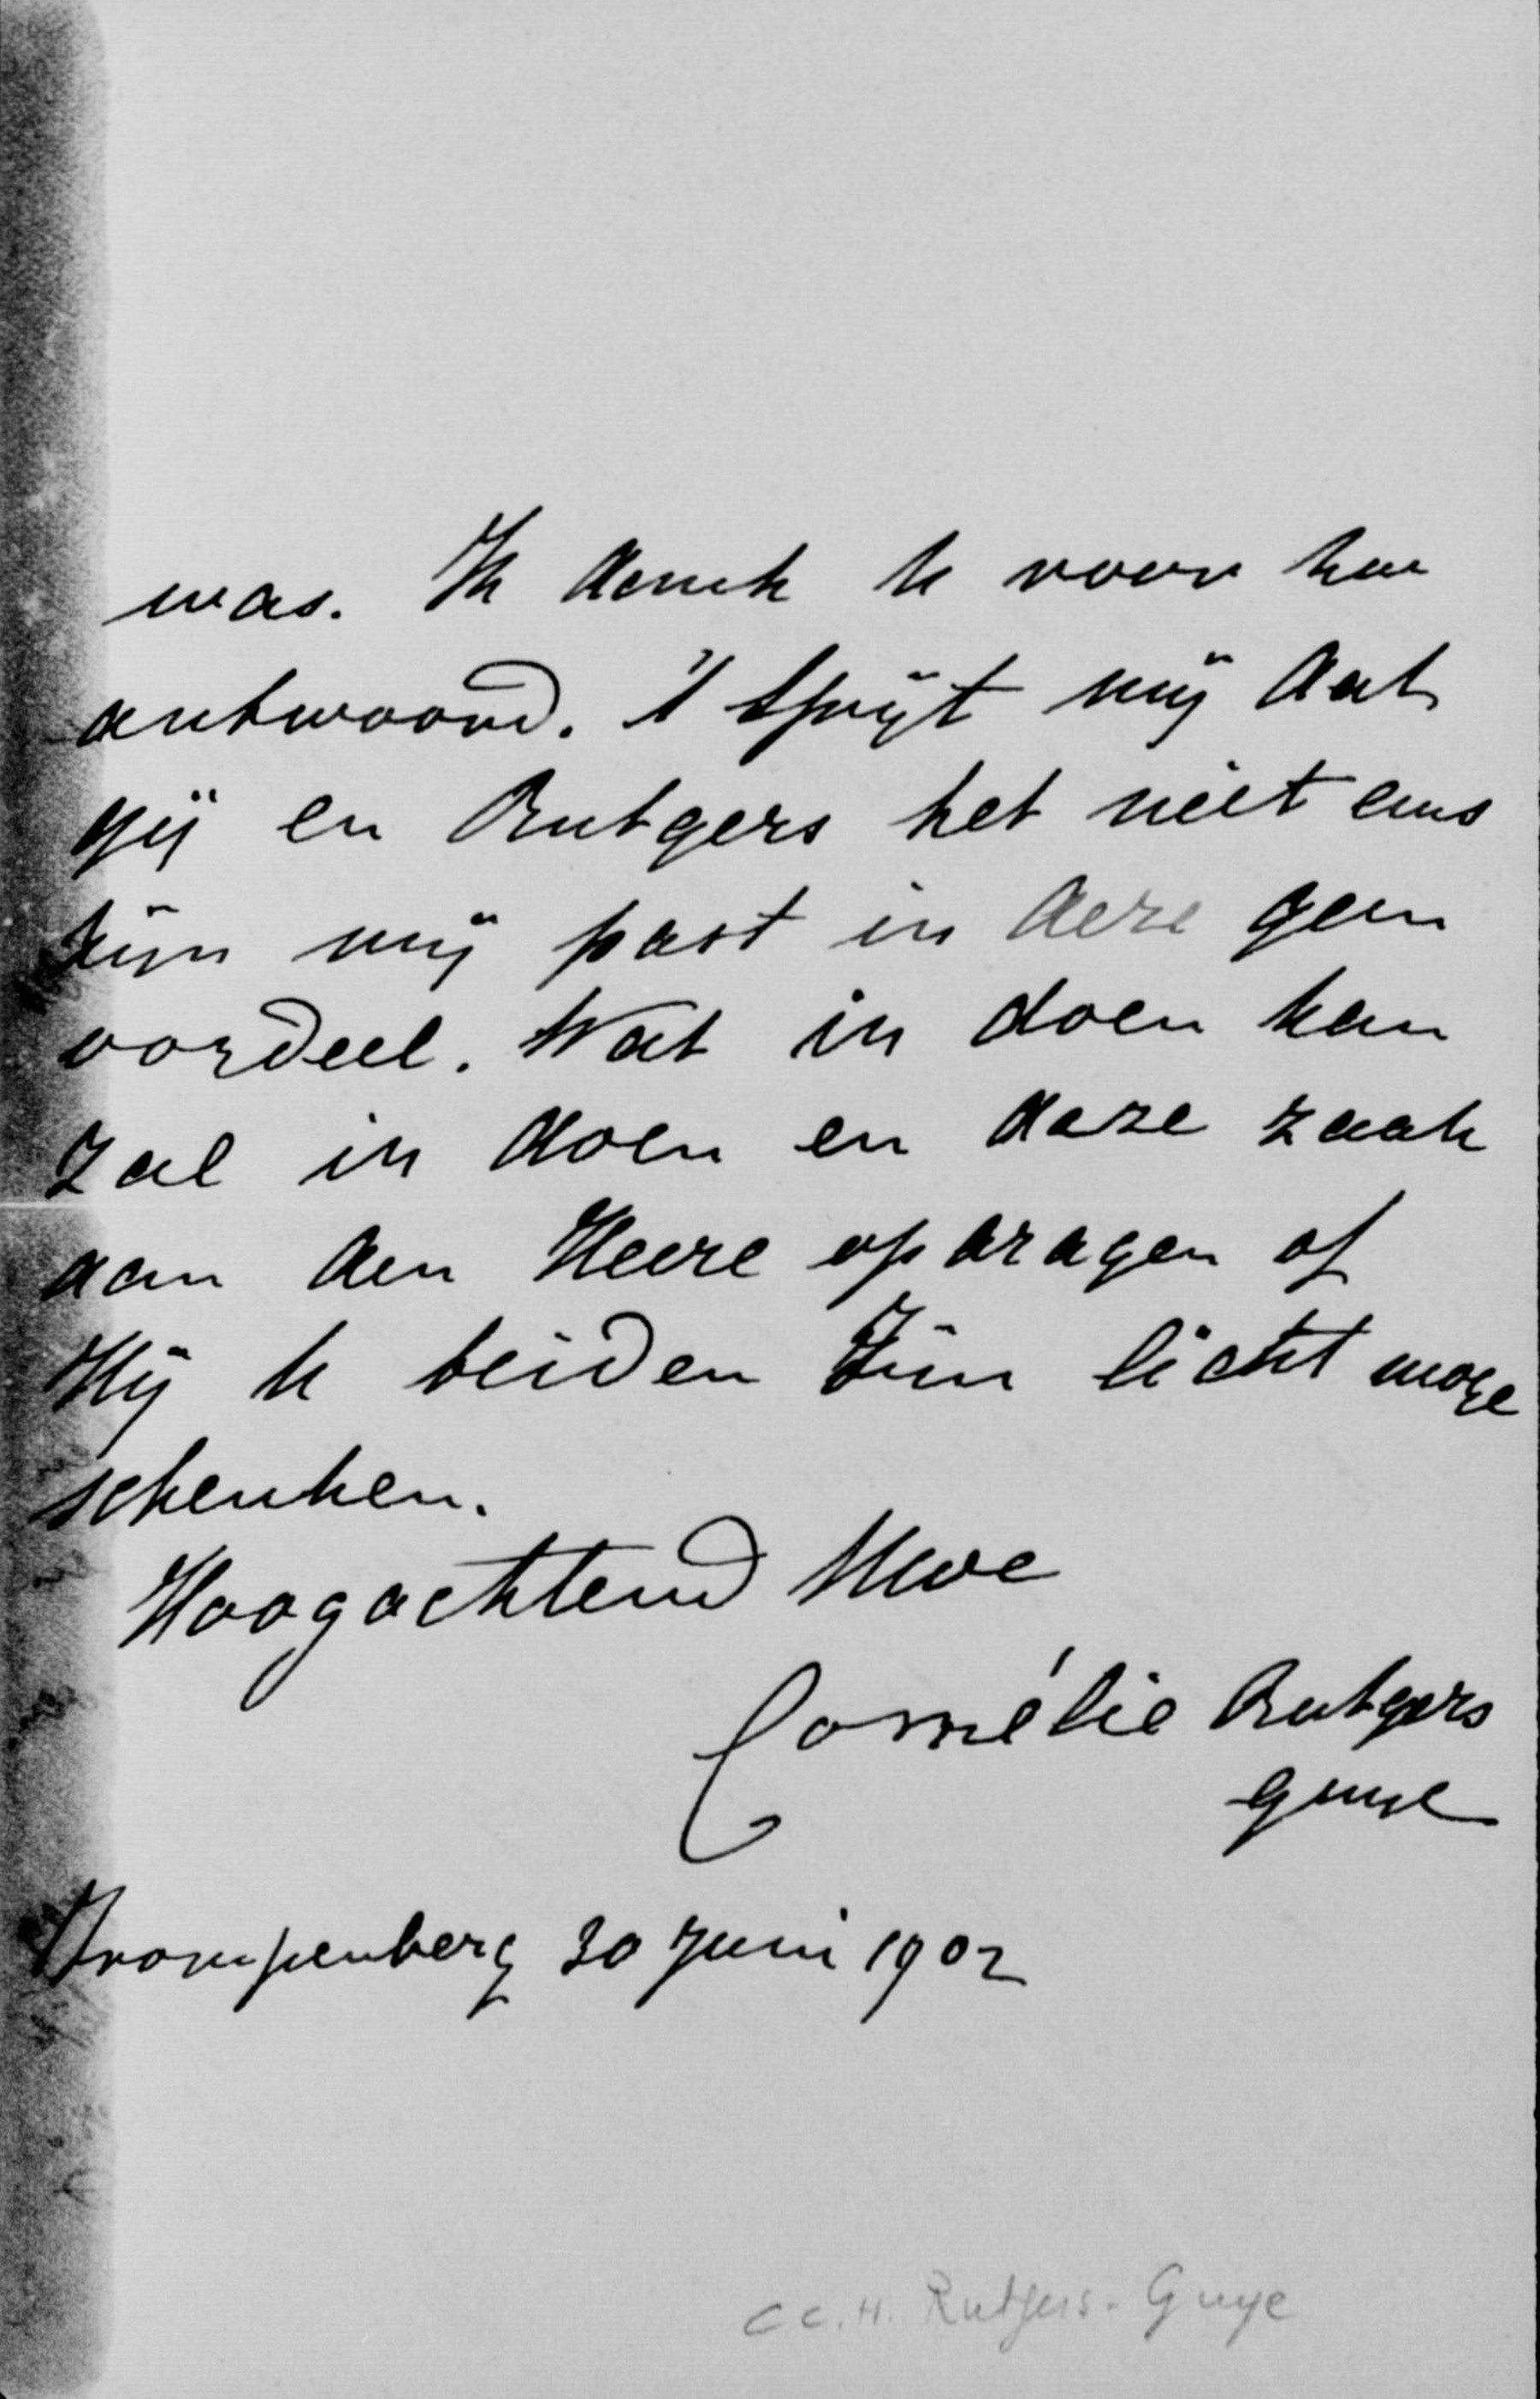 was. Ik dank U voor Uw
antwoord. 't Spijt mij dat
gij en Rutgers het niet eens
zijn mij past in deze geen
oordeel. Wat ik doen kan
zal ik doen en deze zaak
aan den Heere opdragen of
Hij U beiden Zijn licht moge
schenken.
Hoogachtend Uwe
Cornélie Rutgers
Guye
Trompenberg 30 Juni 1902
C.C.H. Rutgers-Guye